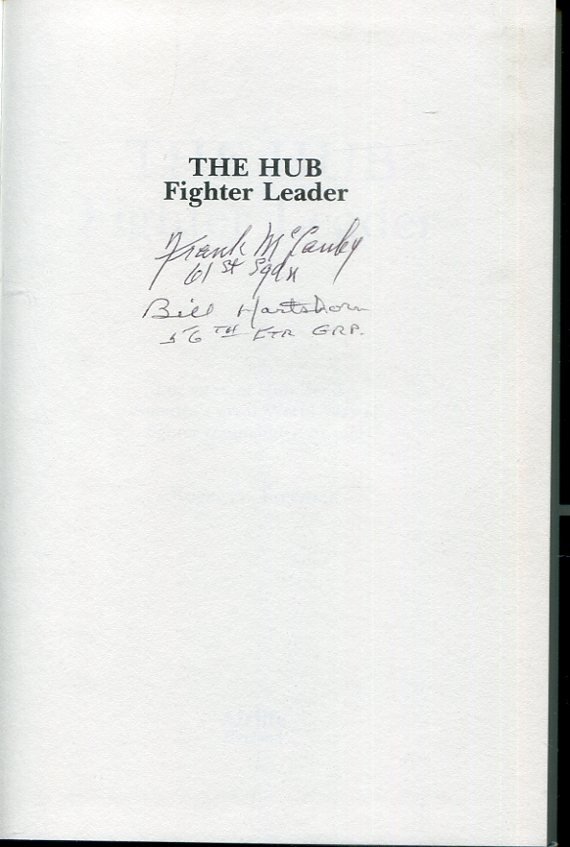 THE HUB
Fighter Leader
Frank McCauley
61st Sqdn
Bill Hartshorn
56TH FTR GRP.